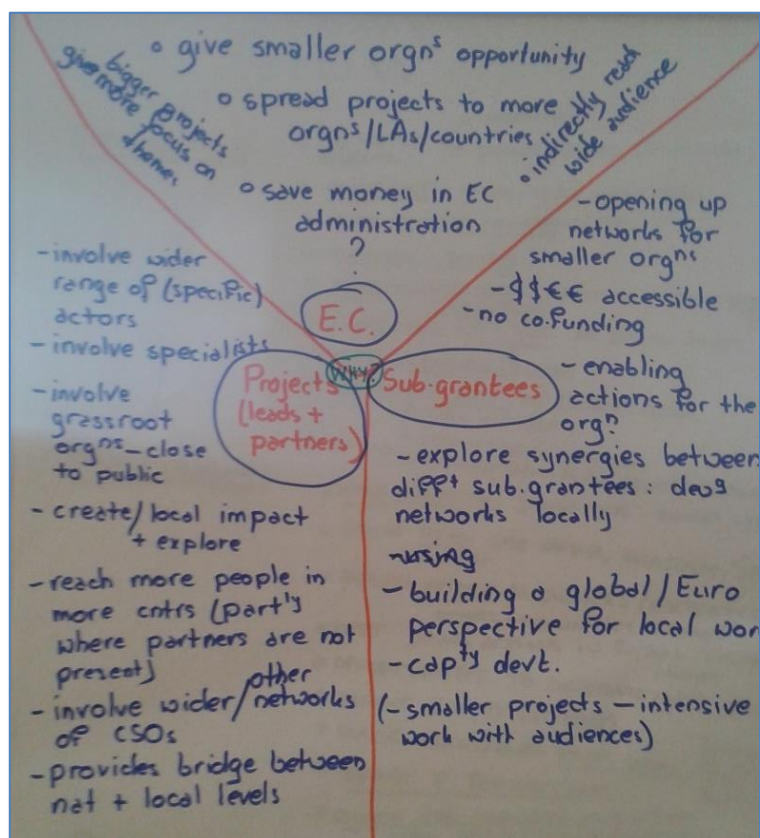 o give smaller orgnˢ opportunity
bigger projects
give more focus on
themes
o spread projects to more
orgnˢ/LAs/countries
o indirectly reach
wide audience
o save money in EC
administration
?
E.C.
WHY?
Projects
(leads +
partners)
Sub-grantees
- involve wider
range of (specific)
actors
- involve specialists
- involve
grassroot
orgnˢ - close
to public
- create/local impact
+ explore
- reach more people in
more cntrs (part'ly
where partners are not
present)
- involve wider/other networks
of CSOs
- provides bridge between
nat + local levels
- opening up
networks for
smaller orgnˢ
- $$€€ accessible
- no co-funding
- enabling
actions for the
orgn?
- explore synergies between
diffᵗ sub-grantees : devᵍ
networks locally
- building a global/Euro
perspective for local wor
- capᵗʸ devt.
(- smaller projects - intensive
work with audiences)